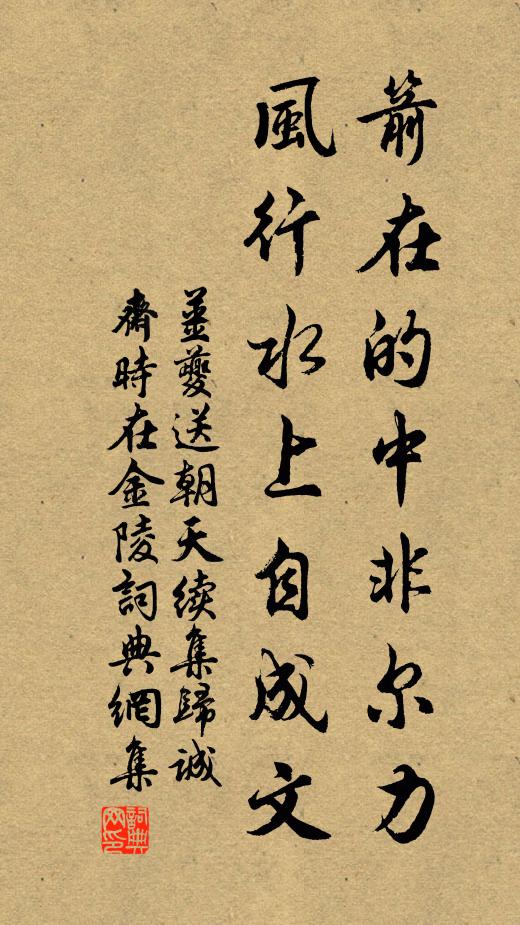 箭在的中非尔力
風行水上自成文
薑夔送朝天续集歸誠
齋時在金陵詞典網集
詞典
网印